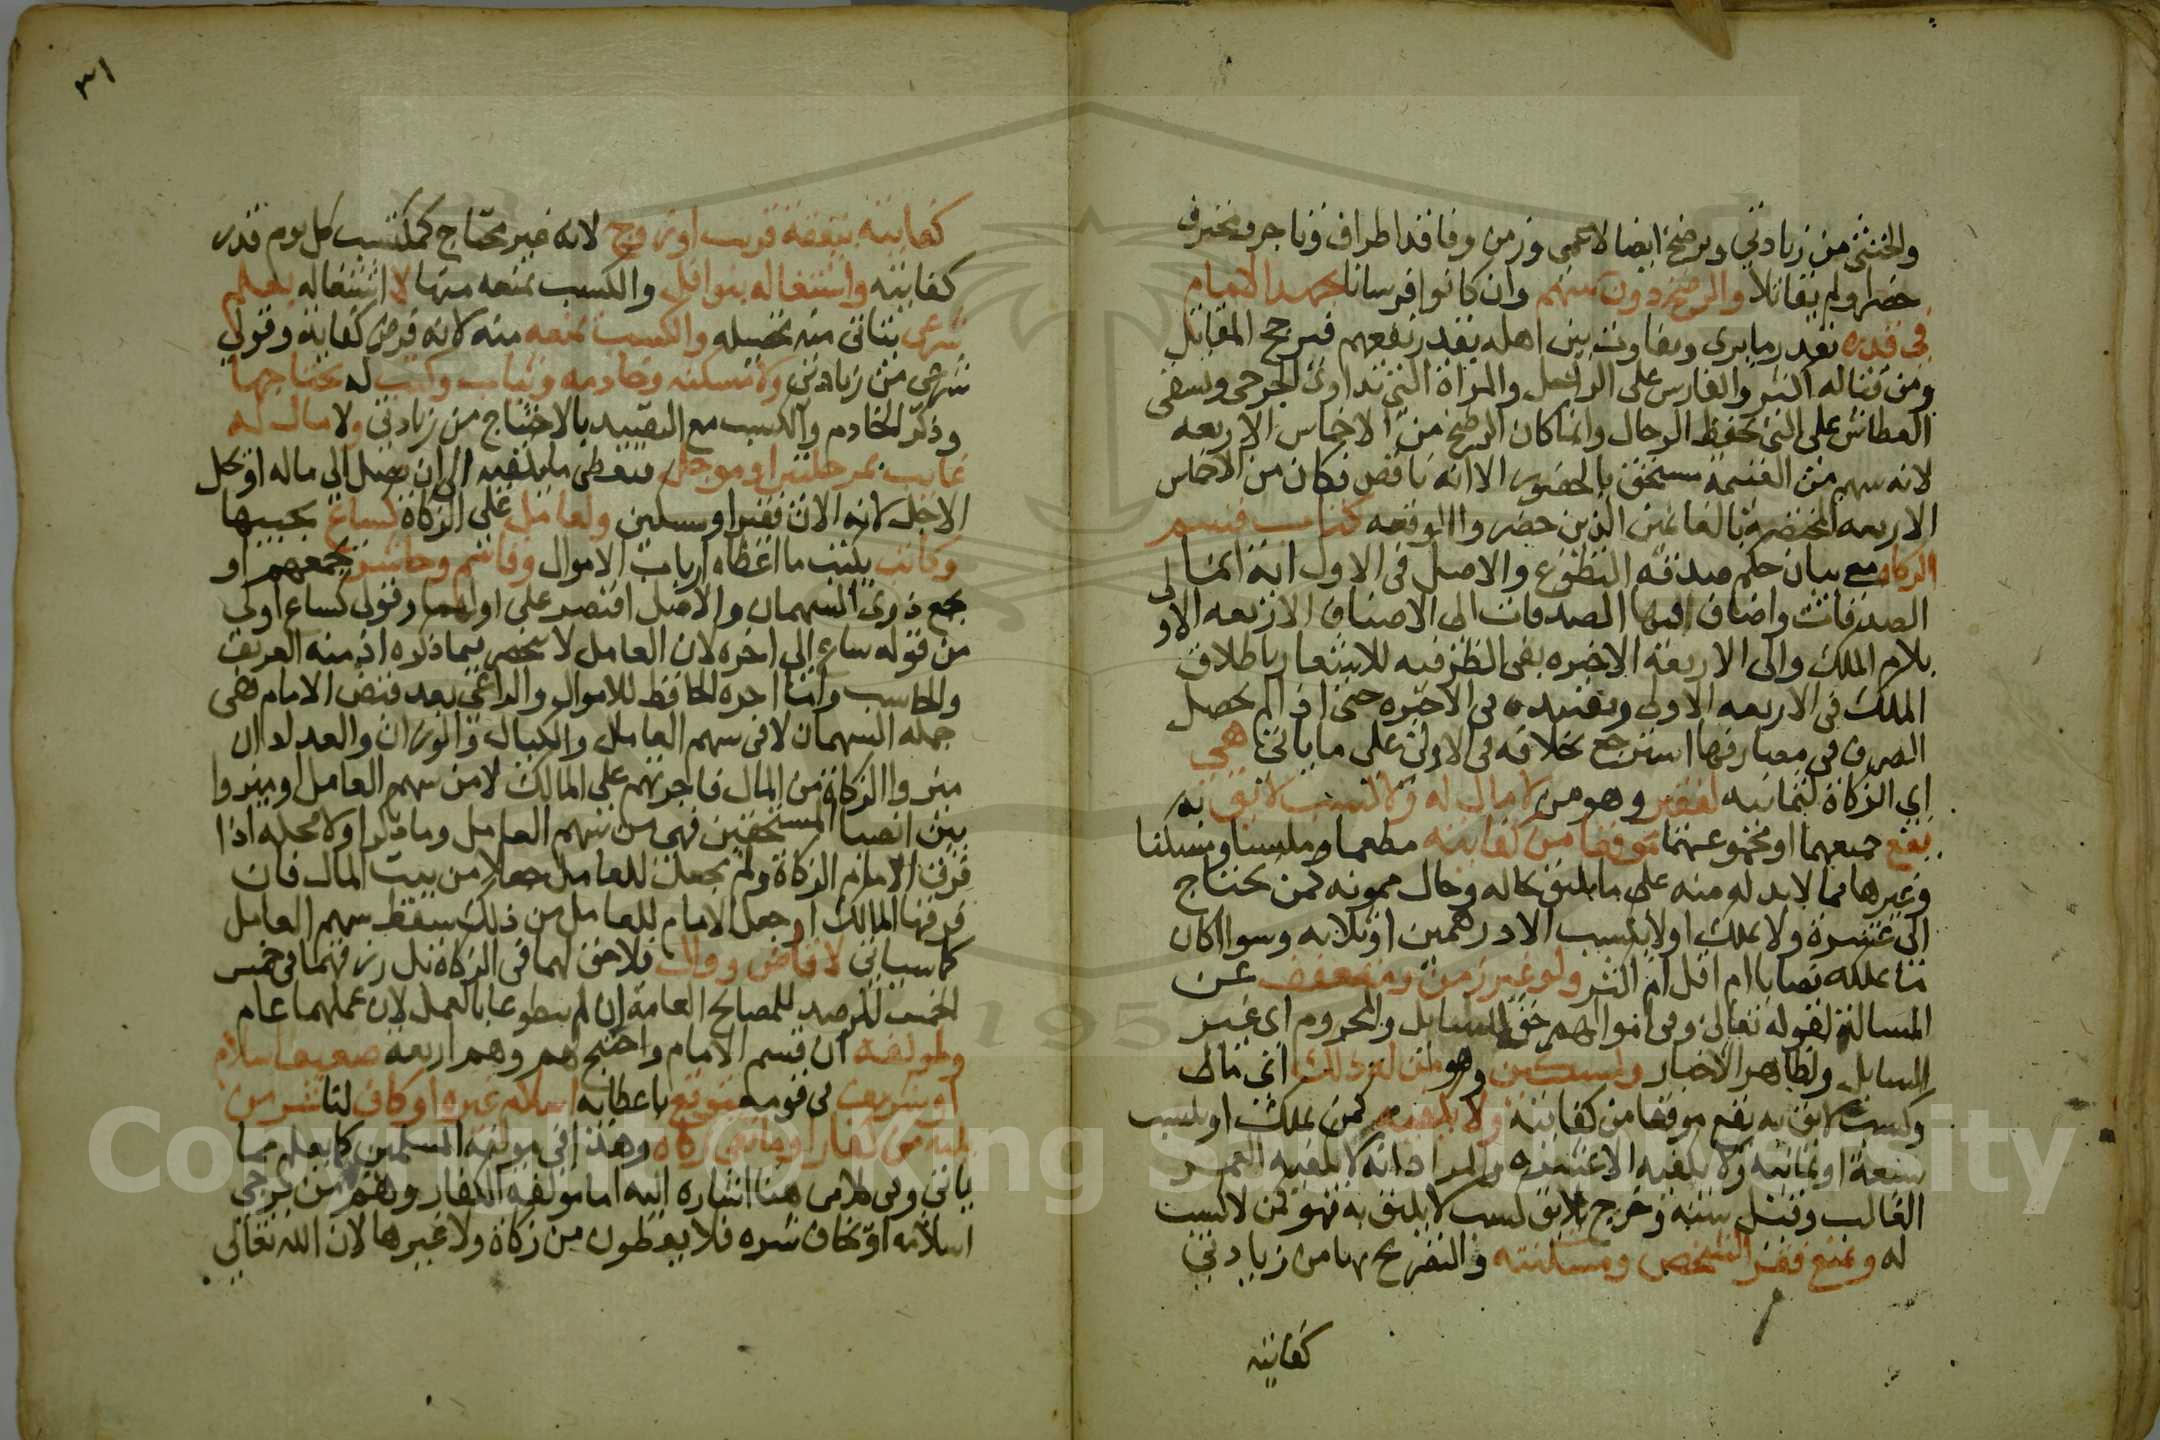 والخنثى من زيادتي ويرضخ ايضا لاعمى وزمن وفاقد اطراف وتاجر ومحترف
حضرا ولم يقاتلا والرضخ دون سهم وان كانوا فرسانا يجتهد الامام
في قدره بقدر ما يرى ويفاوت بين اهله بقدر نفعهم فيرجح المقاتل
ومن قتاله اكثر والفارس على الراجل والمراة التي تداوي الجرحى وتسقي
العطاش على التي تحفظ الرحال وانما كان الرضخ من الاخماس الاربعه
لانه سهم من الغنيمة مستحق بالحضور الا انه ناقص فكان من الاخماس
الاربعه المختصة بالغانمين الذين حضروا الوقعه كتاب قسم
الزكاه مع بيان حكم صدقه التطوع والاصل في الاول اية انما
الصدقات واضاف فيها الصدقات الى الاصناف الاربعه الاولى
بلام الملك والى الاربعة الاخيره بفي الظرفيه للاشعار باطلاق
الملك في الاربعه الاولى وتقييده في الاخيره حتى اذا لم يحصل
الصرف في مصارفها استرجع بخلافه في الاولى على ما ياتي هي
اي الزكاة لثمانيه لفقير وهو من لا مال له ولا كسب لائق به
يقع جميعهما او مجموعهما موقعا من كفايته مطعما وملبسا ومسكنا
وغيرها مما لا بد له منه على ما يليق بحاله وحال ممونه كمن يحتاج
الى عشرة ولا يملك او لا يكتسب الا درهمين او ثلاثه وسوا اكان
ما يملكه نصابا ام اقل ام اكثر ولو غير زمن ومتعفف عن
المسالة لقوله تعالى وفي اموالهم حق للسايل والمحروم اي غير
السايل ولظاهر الاخبار ولمسكين وهو من له ذلك اي مال
وكسب لائق به يقع موقعا من كفايته ولا يكفيه كمن يملك او يكسب
سبعة او ثمانيه ولا يكفيه الا عشره والمراد انه لا يكفيه العمر
الغالب وقيل سنه وخرج بلائق كسب لا يليق به فهو كمن لا كسب
له ويمنع فقر الشخص ومسكنته والتصريح بها من زيادتي
كفايته
٣١
كفايته بنفقة قريب او زوج لانه غير محتاج كمكتسب كل يوم قدر
كفايته واشتغاله بنوافل والكسب يمنعه منها لا اشتغاله بعلم
شرعي يتاتى منه تحصيله والكسب يمنعه منه لانه فرض كفاية وقولي
شرعي من زيادتي ولا مسكنه وخادمه وثياب وكتب له يحتاجها
وذكر الخادم والكسب مع التقييد بالاحتياج من زيادتي ولا مال له
غايب بمرحلتين او موجل فيعطى ما يكفيه الى ان يصل الى ماله او يحل
الاجل لانه الان فقير او مسكين ولعامل على الزكاة كساع يجبيها
وكاتب يكتب ما اعطاه ارباب الاموال وقاسم وحاشر يجمعهم او
يجمع ذوي السهمان والاصل اقتصر على اولهما وقولي كساع اولى
من قوله ساع الى اخره لان العامل لا ينحصر بما ذكره اذ منه العريف
والحاسب واما اجره الحافظ للاموال والراعي بعد قبض الامام ففي
جمله السهمان لا في سهم العامل والكيال والوزان والعداد ان
ميزوا الزكاة من المال فاجرتهم على المالك لا من سهم العامل او ميزوا
بين انصبا المستحقين فهي من سهم العامل وما ذكر اولا محله اذا
فرق الامام الزكاة ولم يجعل للعامل جعلا من بيت المال فان
فرقها المالك او جعل الامام للعامل من ذلك سقط سهم العامل
كما سياتي لا قاض ووال فلا حق لهما في الزكاة بل رزقهما في خمس
الخمس المرصد للمصالح العامة ان لم يتطوعا بالعمل لان عملهما عام
ولمولفه ان قسم الامام واحتيج لهم وهم اربعه ضعيف اسلام
او شريف في قومه يتوقع باعطائه اسلام غيره او كاف لنا شر من
يليه من كفار او مانعي زكاه وهذا في مولفه المسلمين كما يعلم مما
ياتي وفي كلامي هنا اشاره اليه اما مولفه الكفار وهم من يرجى
اسلامه او يخاف شره فلا يعطون من زكاة ولا غيرها لان الله تعالى
Copyright © King Saud University
195